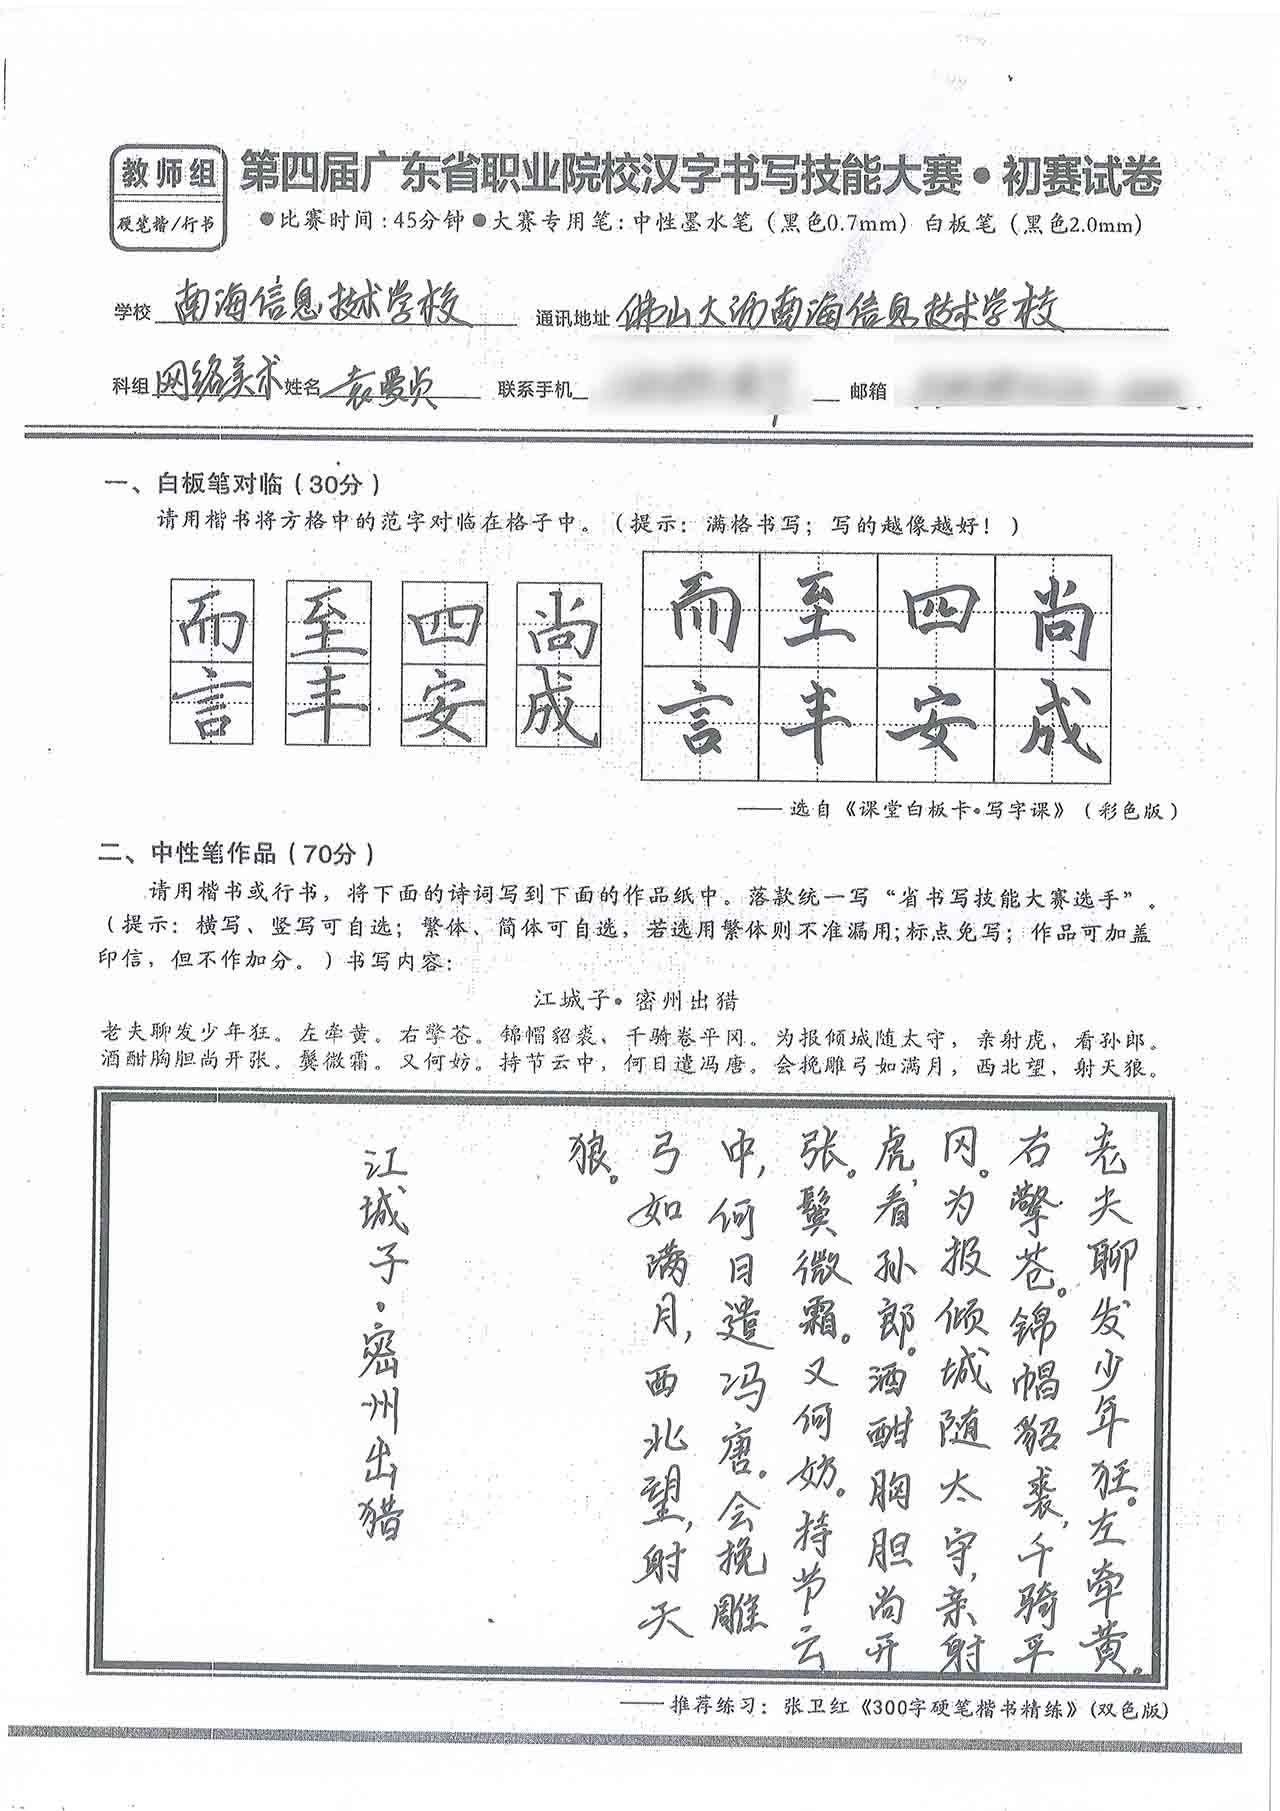 教师组
硬笔楷/行书
第四届广东省职业院校汉字书写技能大赛·初赛试卷
●比赛时间:45分钟●大赛专用笔:中性墨水笔(黑色0.7mm)白板笔(黑色2.0mm)
学校 南海信息技术学校 通讯地址 佛山大沥南海信息技术学校
科组 网络美术 姓名 袁曼贞 联系手机 邮箱
一、白板笔对临(30分)
请用楷书将方格中的范字对临在格子中。(提示:满格书写;写的越像越好!)
而 至 四 尚 而 至 四 尚
言 丰 安 成 言 丰 安 成
——选自《课堂白板卡·写字课》(彩色版)
二、中性笔作品(70分)
请用楷书或行书,将下面的诗词写到下面的作品纸中。落款统一写“省书写技能大赛选手”。
(提示:横写、竖写可自选;繁体、简体可自选,若选用繁体则不准漏用;标点免写;作品可加盖
印信,但不作加分。)书写内容:
江城子·密州出猎
老夫聊发少年狂。左牵黄。右擎苍。锦帽貂裘、千骑卷平冈。为报倾城随太守,亲射虎,看孙郎。
酒酣胸胆尚开张。鬓微霜。又何妨。持节云中,何日遣冯唐。会挽雕弓如满月,西北望,射天狼。
老夫聊发少年狂。左牵黄。
右擎苍。锦帽貂裘,千骑平
冈。为报倾城随太守,亲射
虎,看孙郎。酒酣胸胆尚开
张。鬓微霜。又何妨。持节云
中,何日遣冯唐。会挽雕
弓如满月,西北望,射天
狼。
江城子·密州出猎
——推荐练习:张卫红《300字硬笔楷书精练》(双色版)